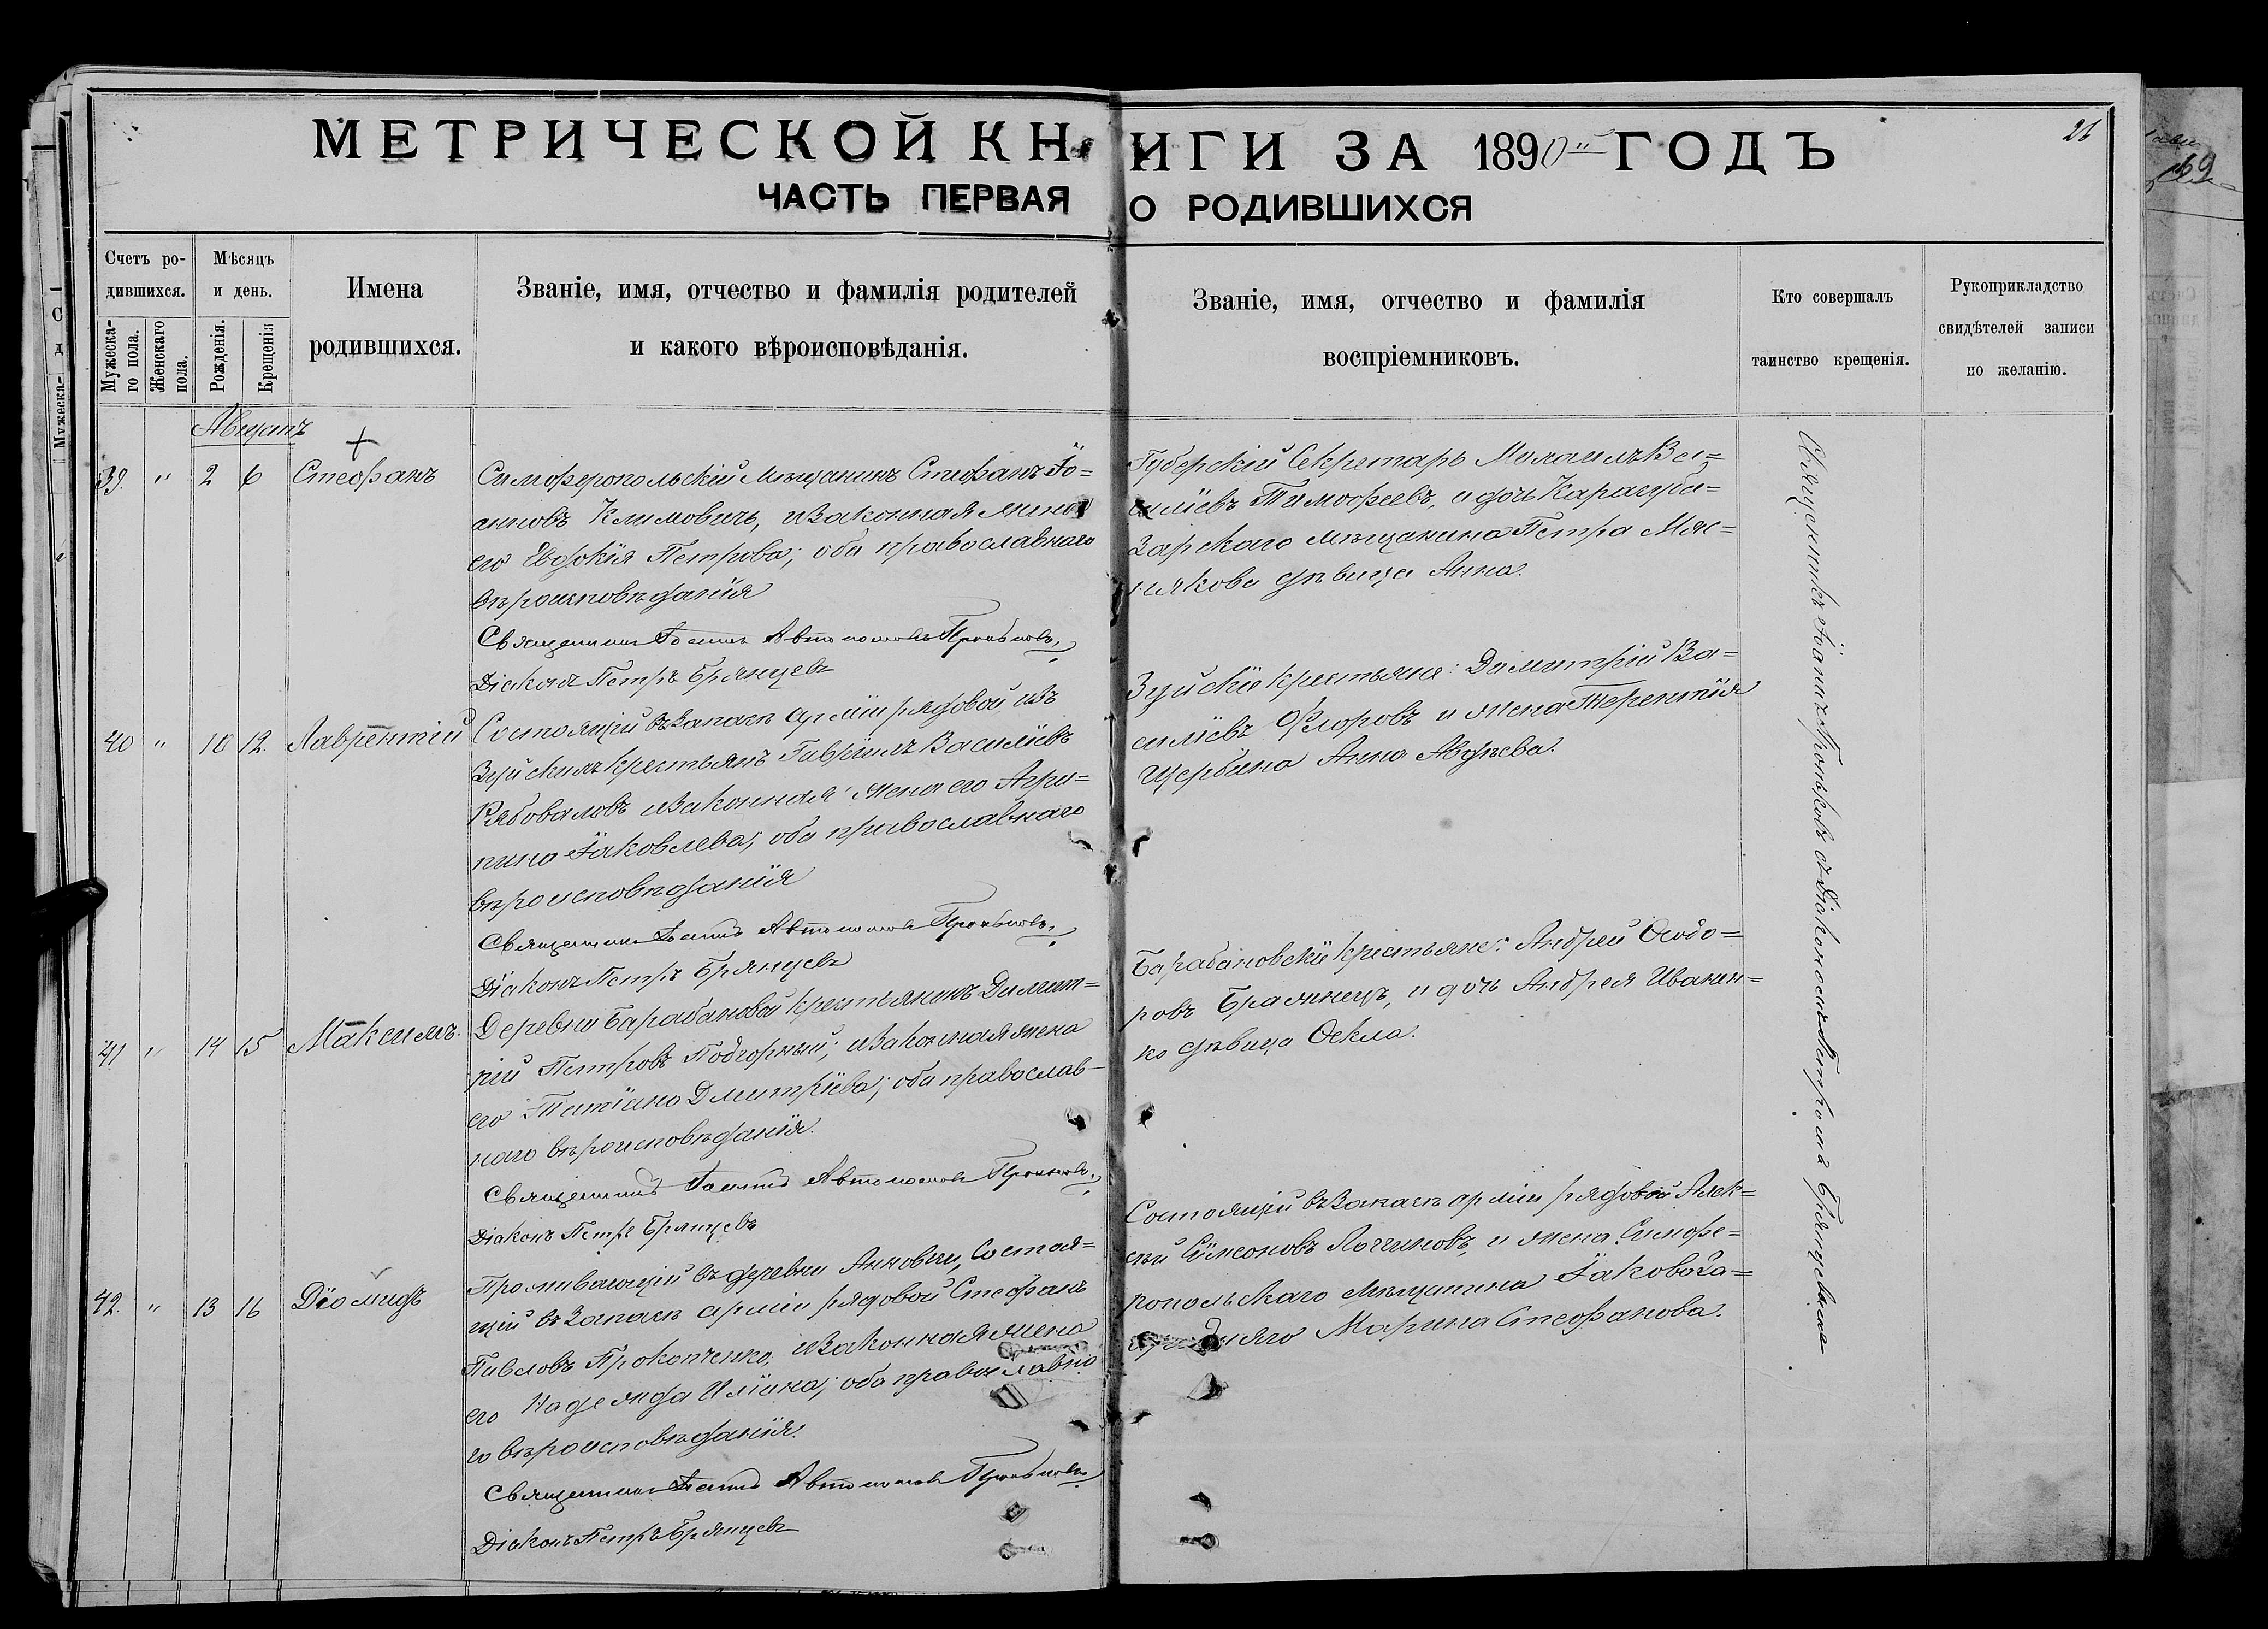 МЕТРИЧЕСКОЙ КНИГИ ЗА 1890 ГОДЪ
26
ЧАСТЬ ПЕРВАЯ О РОДИВШИХСЯ
Счетъ ро-
дившихся.
Мужеска-
го пола.
Женскаго
пола.
Мѣсяцъ
и день.
Рожденія.
Крещенія
Имена
родившихся.
Званіе, имя, отчество и фамилія родителей
и какого вѣроисповѣданія.
Званіе, имя, отчество и фамилія
воспріемниковъ.
Кто совершалъ
таинство крещенія.
Рукоприкладство
свидѣтелей записи
по желанію.
Августъ
39. " 2 6 Стефанъ
Симферопольскій мѣщанинъ Стефанъ Іо=
анновъ Климовичъ, и законная жена
его Евдокія Петрова; оба православнаго
вѣроисповѣданія
Священникъ Іоаннъ Автономовъ Проньковъ
Діаконъ Петръ Брянцевъ
Губерскій Секретарь Михаилъ Ва=
силіевъ Тимофеевъ, и дочь Карасуба=
зарскаго мѣщанина Петра Мяс=
никова дѣвица Анна.
40 " 10 12. Лаврентій
Состоящій въ запасѣ арміи рядовой изъ
Зуйскихъ крестьянъ Гавріилъ Василіевъ
Рябоваловъ и законная жена его Агри=
пина Іаковлева; оба православнаго
вѣроисповѣданія
Священникъ Іоаннъ Автономовъ Проньковъ
Діаконъ Петръ Брянцевъ
Зуйскіе крестьяне: Димитрій Ва=
силіевъ Флоровъ и жена Терентія
Щербина Анна Авдѣева.
41 " 14 15 Максимъ.
Деревни Барабановой крестьянинъ Димит=
рій Петровъ Подгорный; и законная жена
его Татіана Дмитріева; оба православ-
наго вѣроисповѣданія.
Священникъ Іоаннъ Автономовъ Проньковъ
Діаконъ Петръ Брянцевъ
Барабановскіе крестьяне: Андрей Ѳеодо=
ровъ Бражнецъ, и дочь Андрея Иванен=
ко дѣвица Ѳекла.
42. " 13 16 Діомидъ
Проживающій въ деревни Анновки, Состоя=
щій въ запасѣ арміи рядовой Стефанъ
Павловъ Прокопченко, и законная жена
его Надежда Иліина; оба православна
го вѣроисповѣданія.
Священникъ Іоаннъ Автономовъ Проньковъ
Діаконъ Петръ Брянцевъ
Состоящій въ запасѣ арміи рядовой Алек=
сѣй Сѵмеоновъ Логиновъ, и жена Симфе=
ропольскаго мѣщанина Іакова За=
Марина Стефанова.
Священникъ Іоаннъ Проньковъ съ Діакономъ Петромъ Брянцевымъ